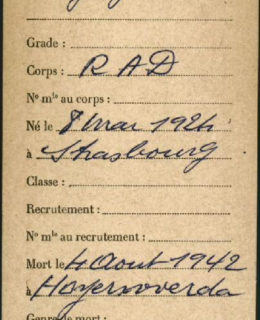 Grade :
Corps : RAD
Nº mle au corps :
Né le 8 Mai 1924
à Strasbourg
Classe :
Recrutement :
Nº mle au recrutement :
Mort le 4 Aout 1942
à Hoyersoverda
Genre de mort :